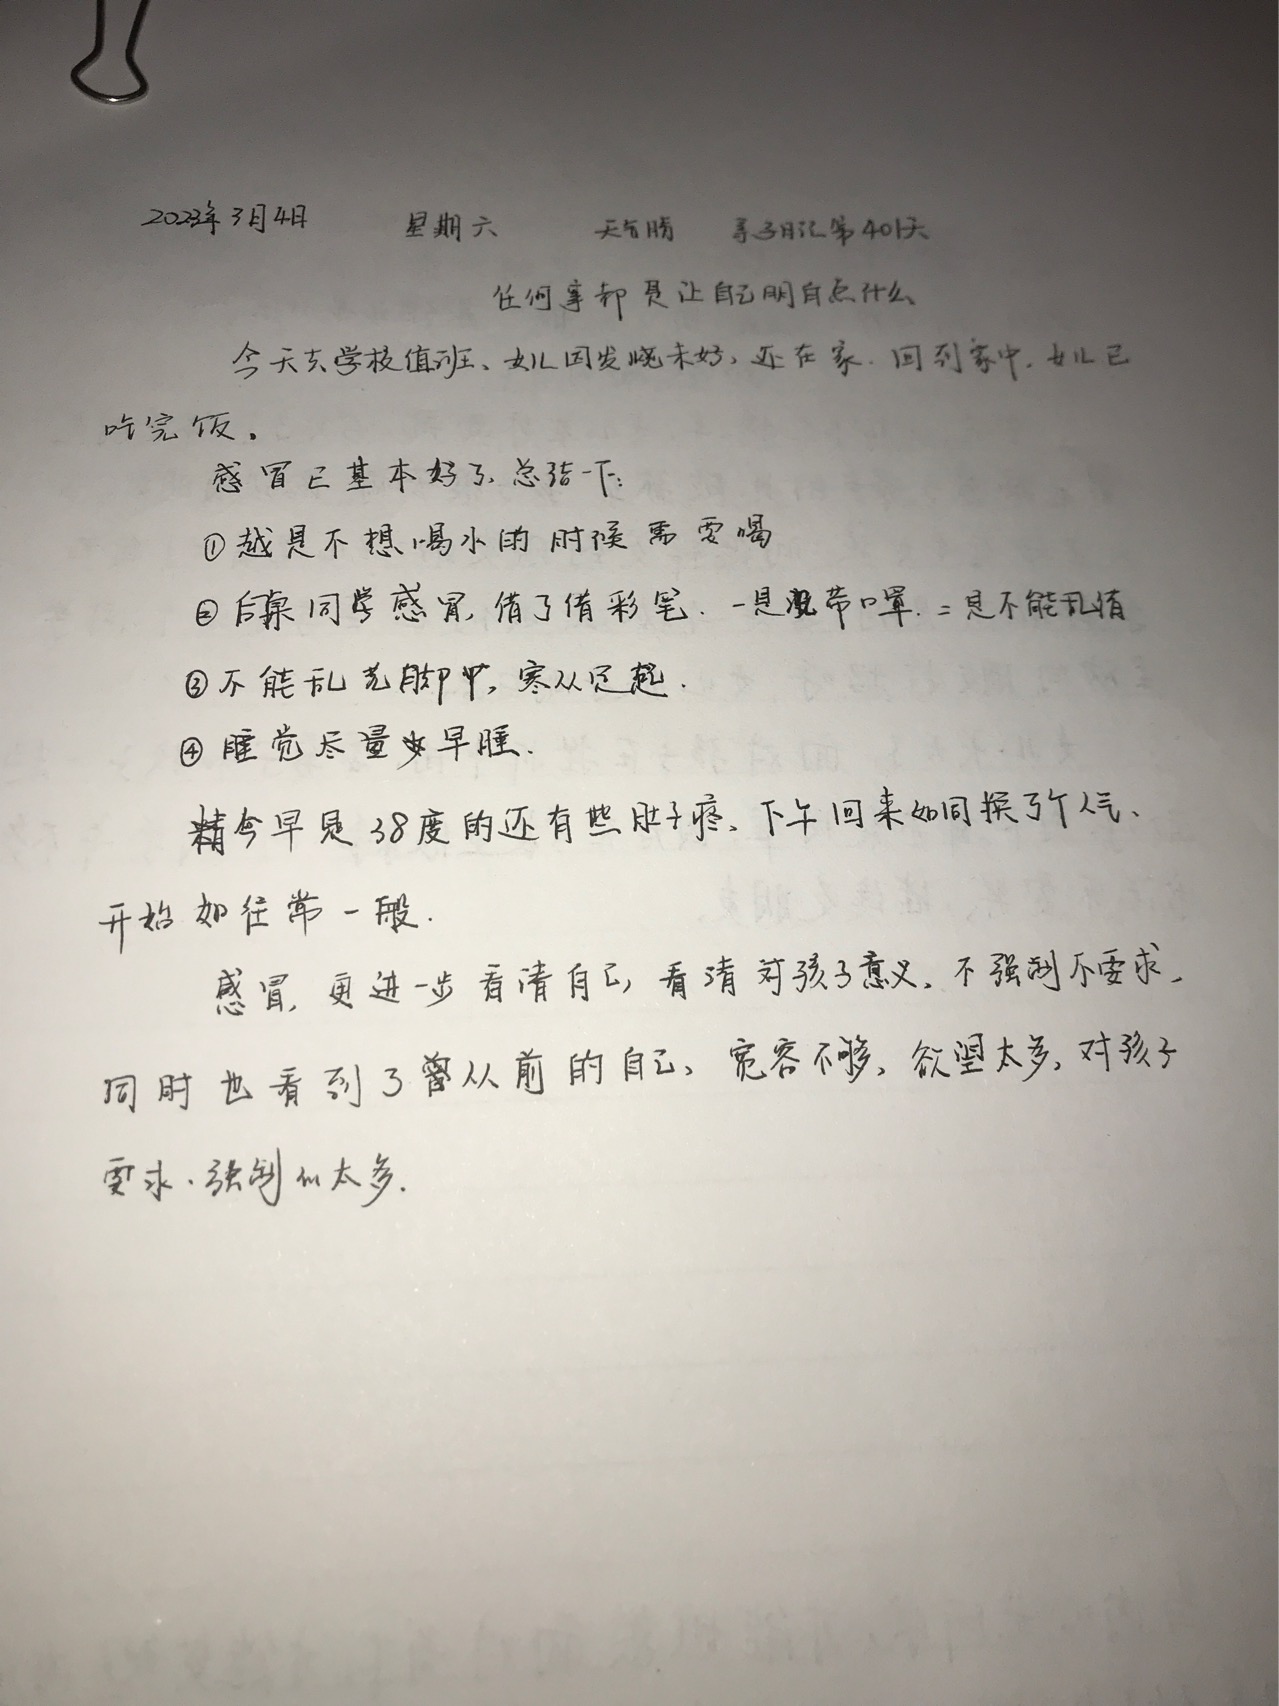 2023年3月4日 星期六 天气晴 亲子日记第401天
任何事都是让自己明白点什么
今天去学校值班、女儿因发烧未好，还在家．回到家中，女儿已
吃完饭。
感冒已基本好了，总结一下：
①越是不想喝水的时候需要喝
②后桌同学感冒，借了借彩笔．一是没带口罩．二是不能乱借
③不能乱光脚丫，寒从足起．
④睡觉尽量早睡．
今早是38度的还有些肚子疼、下午回来如同换了个人气、
开始如往常一般．
感冒，更进一步看清自己，看清对孩子意义、不强制不要求，
同时也看到了从前的自己、宽容不够，欲望太多，对孩子
要求．强制似太多．